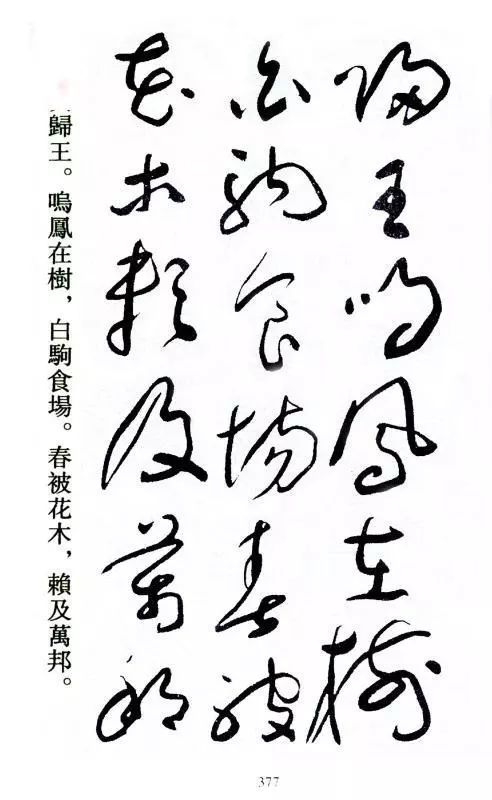 歸王鳴鳳在樹
白駒食場春被
花木賴及萬邦
歸王。嗚鳳在樹，白駒食場。春被花木，賴及萬邦。
377